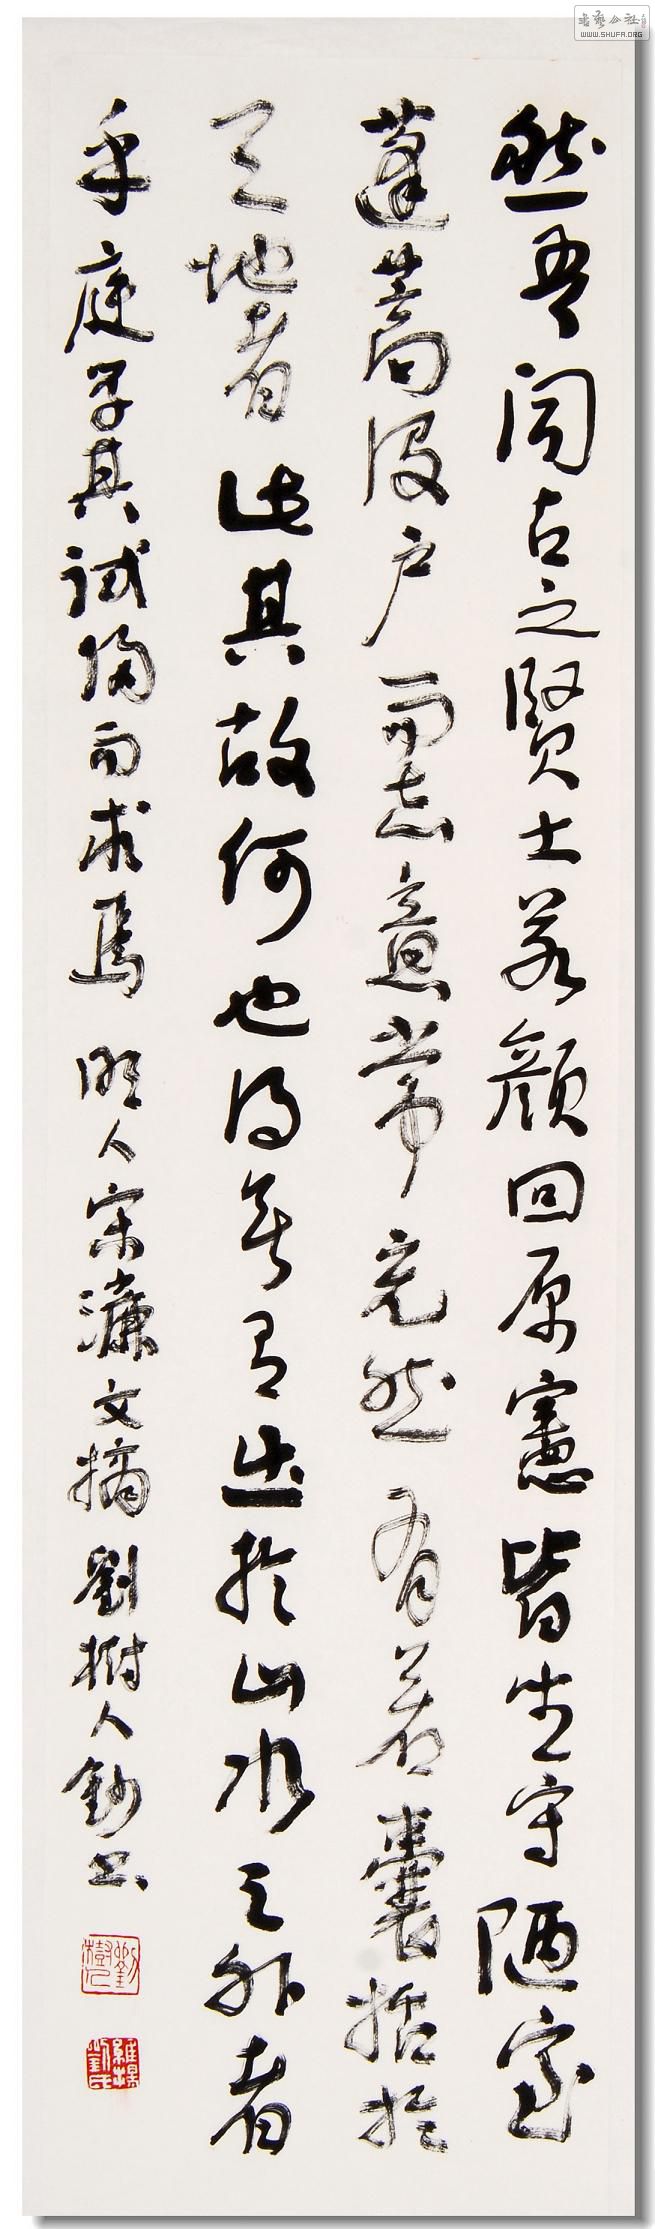 然吾闻古之賢士若顏回原憲皆坐守陋室
蓬蒿没户而志意常充然有若囊括於
天地者此其故何也得無有出於山水之外者
乎庭學其試歸而求焉明人宋濂文摘劉樹人鈔書
劉樹人
維揚劉氏
書藝公社
WWW.SHUFA.ORG